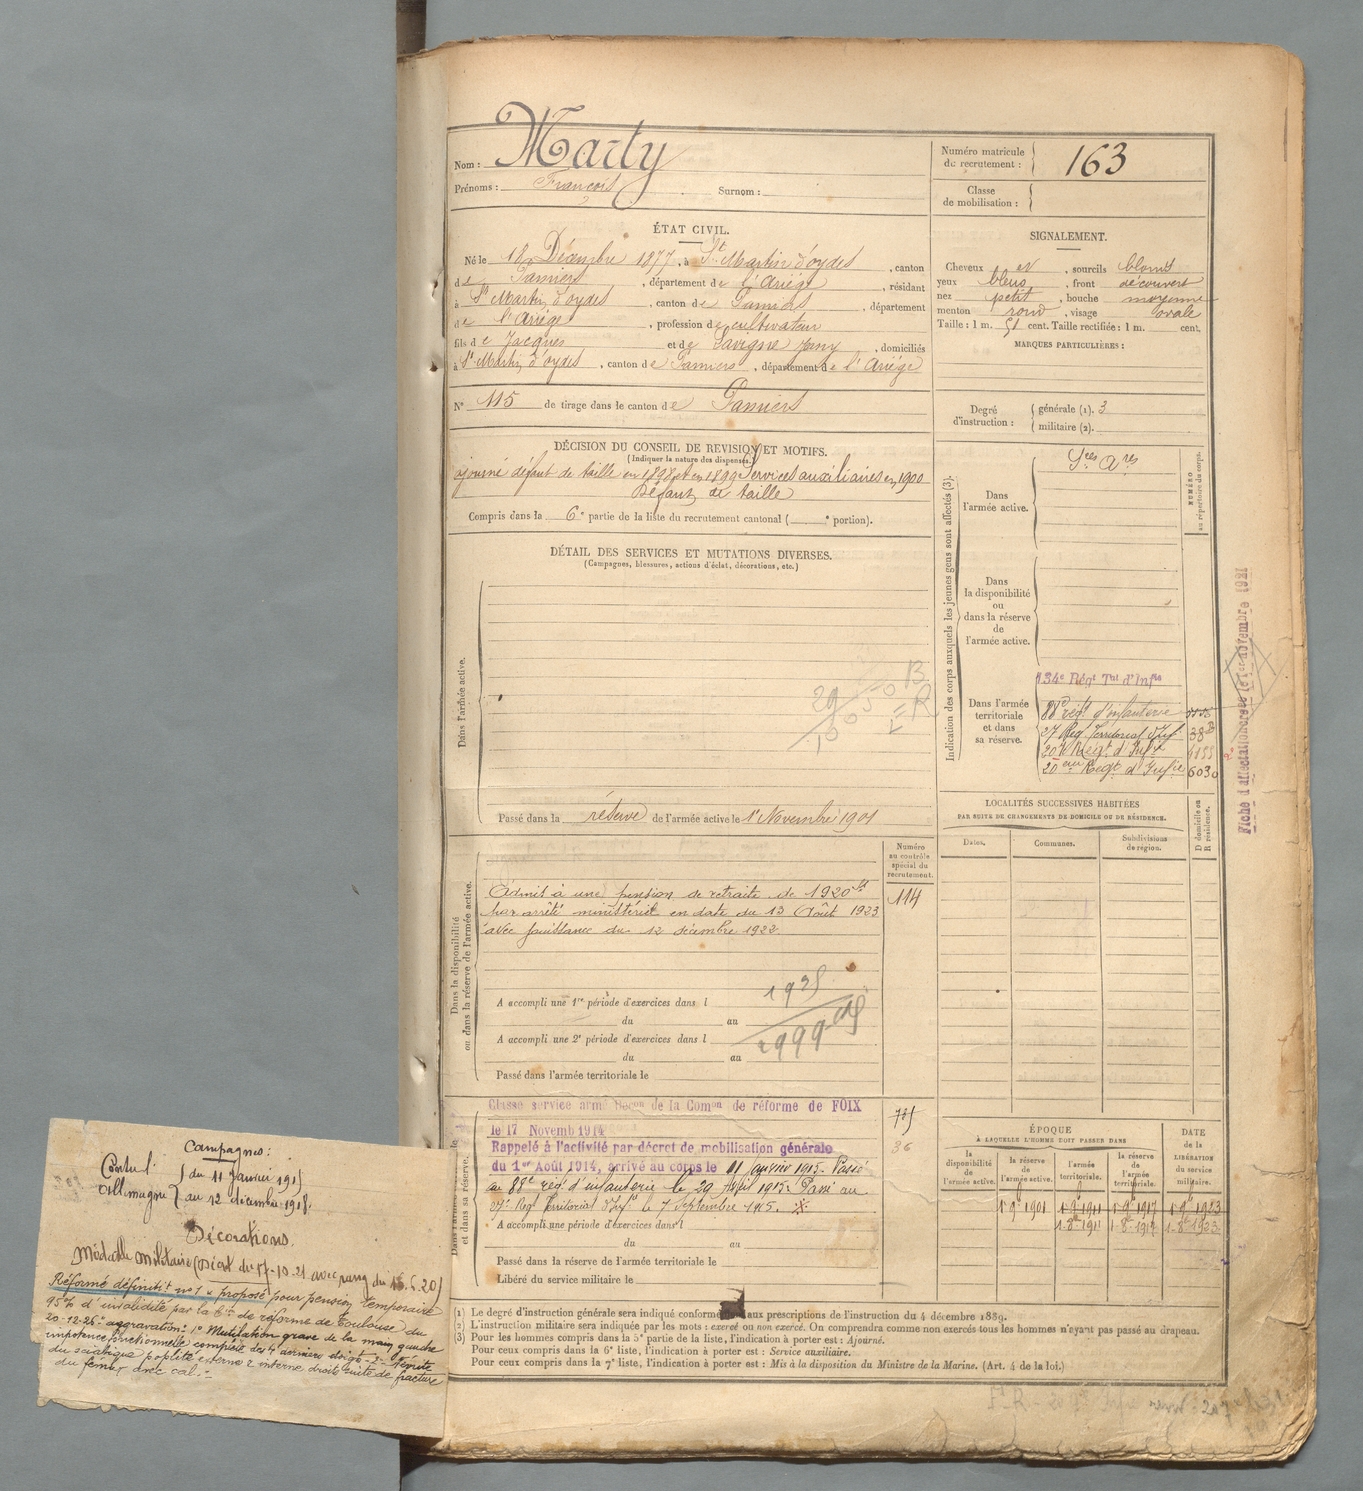 Nom : Marty
Prénoms : François Surnom :
Numéro matricule
du recrutement : 163
Classe
de mobilisation :
ÉTAT CIVIL.
Né le 18 Décembre 1877, à St Martin d'oydes, canton
de Pamiers, département de l'Ariège, résidant
à St Martin d'oydes, canton de Pamiers, département
de l'Ariège, profession de cultivateur
fils de Jacques et de Lavigne Jany, domiciliés
à St Martin d'oydes, canton de Pamiers, département de l'Ariège
N° 115 de tirage dans le canton de Pamiers
SIGNALEMENT.
Cheveux et, sourcils blonds
yeux bleus, front découvert
nez petit, bouche moyenne
menton rond, visage ovale
Taille : 1 m. 51 cent. Taille rectifiée : 1 m. cent.
MARQUES PARTICULIÈRES :
Degré
d'instruction :
générale (1). 3
militaire (2).
DÉCISION DU CONSEIL DE REVISION ET MOTIFS.
(Indiquer la nature des dispenses.)
ajourné défaut de taille en 1898 et en 1899 Services auxiliaires en 1900
Défaut de taille
Compris dans la 6e partie de la liste du recrutement cantonal ( e portion).
DÉTAIL DES SERVICES ET MUTATIONS DIVERSES.
(Campagnes, blessures, actions d'éclat, décorations, etc.)
Dans l'armée active.
Passé dans la réserve de l'armée active le 1er Novembre 1901
Indication des corps auxquels les jeunes gens sont affectés (3).
NUMÉRO
au répertoire du corps.
Dans
l'armée active.
Sces Ares
Dans
la disponibilité
ou
dans la réserve
de
l'armée active.
Dans l'armée
territoriale
et dans
sa réserve.
134e Régt Tal d'Infie
88e régt d'infanterie
27 Reg Territorial Inf
Regt d'Inf
20 eme Regt d'Infie 6030
Fiche d'affectation créée le 1er novembre 1921
LOCALITÉS SUCCESSIVES HABITÉES
PAR SUITE DE CHANGEMENTS DE DOMICILE OU DE RÉSIDENCE.
D domicile ou
R résidence.
Dates. Communes. Subdivisions
de région.
Dans la disponibilité
ou dans la réserve de l'armée active.
Numéro
au contrôle
spécial du
recrutement.
114
Admis à une pension de retraite de 1920
par arrêté ministériel en date du 13 Août 1923
avec jouissance du 12 décembre 1922
A accompli une 1re période d'exercices dans l
du au
A accompli une 2e période d'exercices dans l
du au
Passé dans l'armée territoriale le
Classé service armé Décon de la Comon de réforme de FOIX
le 17 Novemb 1914
Rappelé à l'activité par décret de mobilisation générale
du 1er Août 1914, arrivé au corps le 11 Janvier 1915. Passé
au 88e rég. d'infanterie le 29 Avril 1915. Passé au
27e Reg Territorial d'Infie le 7 Septembre 1915.
A accompli une période d'exercices dans l
du au
Passé dans la réserve de l'armée territoriale le
Libéré du service militaire le
36
ÉPOQUE
À LAQUELLE L'HOMME DOIT PASSER DANS
DATE
de la
LIBÉRATION
du service
militaire.
la
disponibilité
de
l'armée active.
la réserve
de
l'armée active.
l'armée
territoriale.
la réserve
de
l'armée
territoriale.
1 9bre 1901 1 9bre 1911 1 9bre 1917 1 9bre 1923
(1) Le degré d'instruction générale sera indiqué aux prescriptions de l'instruction du 4 décembre 1889.
(2) L'instruction militaire sera indiquée par les mots : exercé ou non exercé. On comprendra comme non exercés tous les hommes n'ayant pas passé au drapeau.
(3) Pour les hommes compris dans la 5e partie de la liste, l'indication à porter est : Ajourné.
Pour ceux compris dans la 6e liste, l'indication à porter est : Service auxiliaire.
Pour ceux compris dans la 7e liste, l'indication à porter est : Mis à la disposition du Ministre de la Marine. (Art. 4 de la loi.)
Campagnes :
Contre l'
Allemagne
du 11 Janvier 1915
au 12 décembre 1918.
Décorations
Médaille militaire (Décret du 17-10-21 avec rang du 16.6.20)
Réformé définitift n° 1 & proposé pour pension temporaire
95% d'invalidité par la Con de réforme de Toulouse du
20-12-26 : aggravation : 1° Mutilation grave de la main gauche
impotence fonctionnelle complète des 4 derniers doigts - 2° Névrite
du sciatique poplité externe & interne droit suite de fracture
du fémur avec cal.